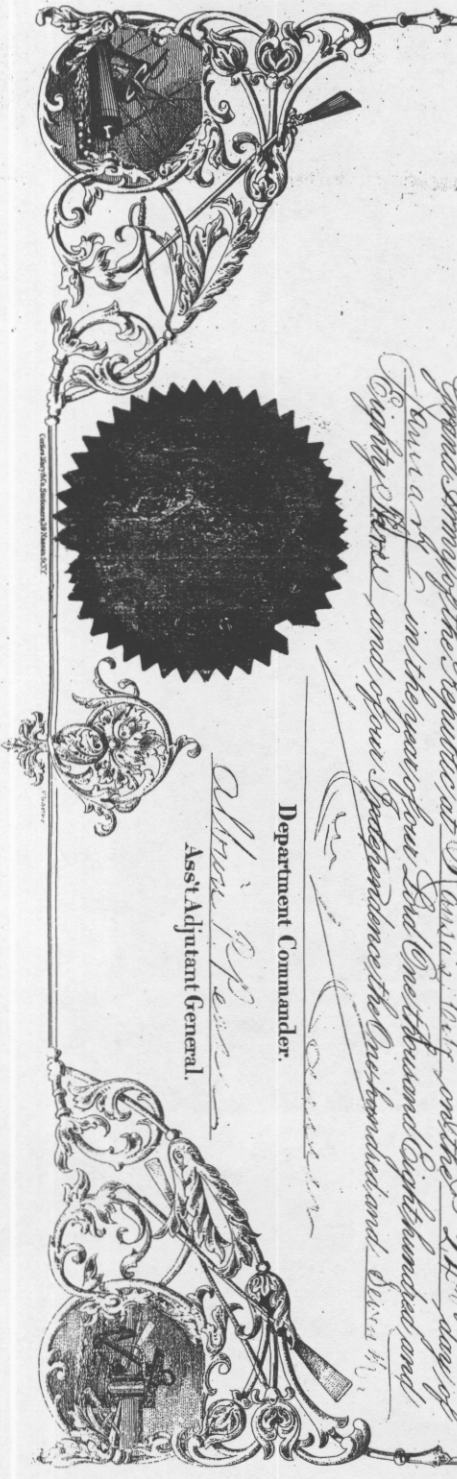 Grand Army of the Republic at Kansas City on the 24th day of
January in the year of our Lord One thousand Eight hundred and
Eighty Three and of our Independence the One hundred and Seventh.
Department Commander.
Ass't Adjutant General.